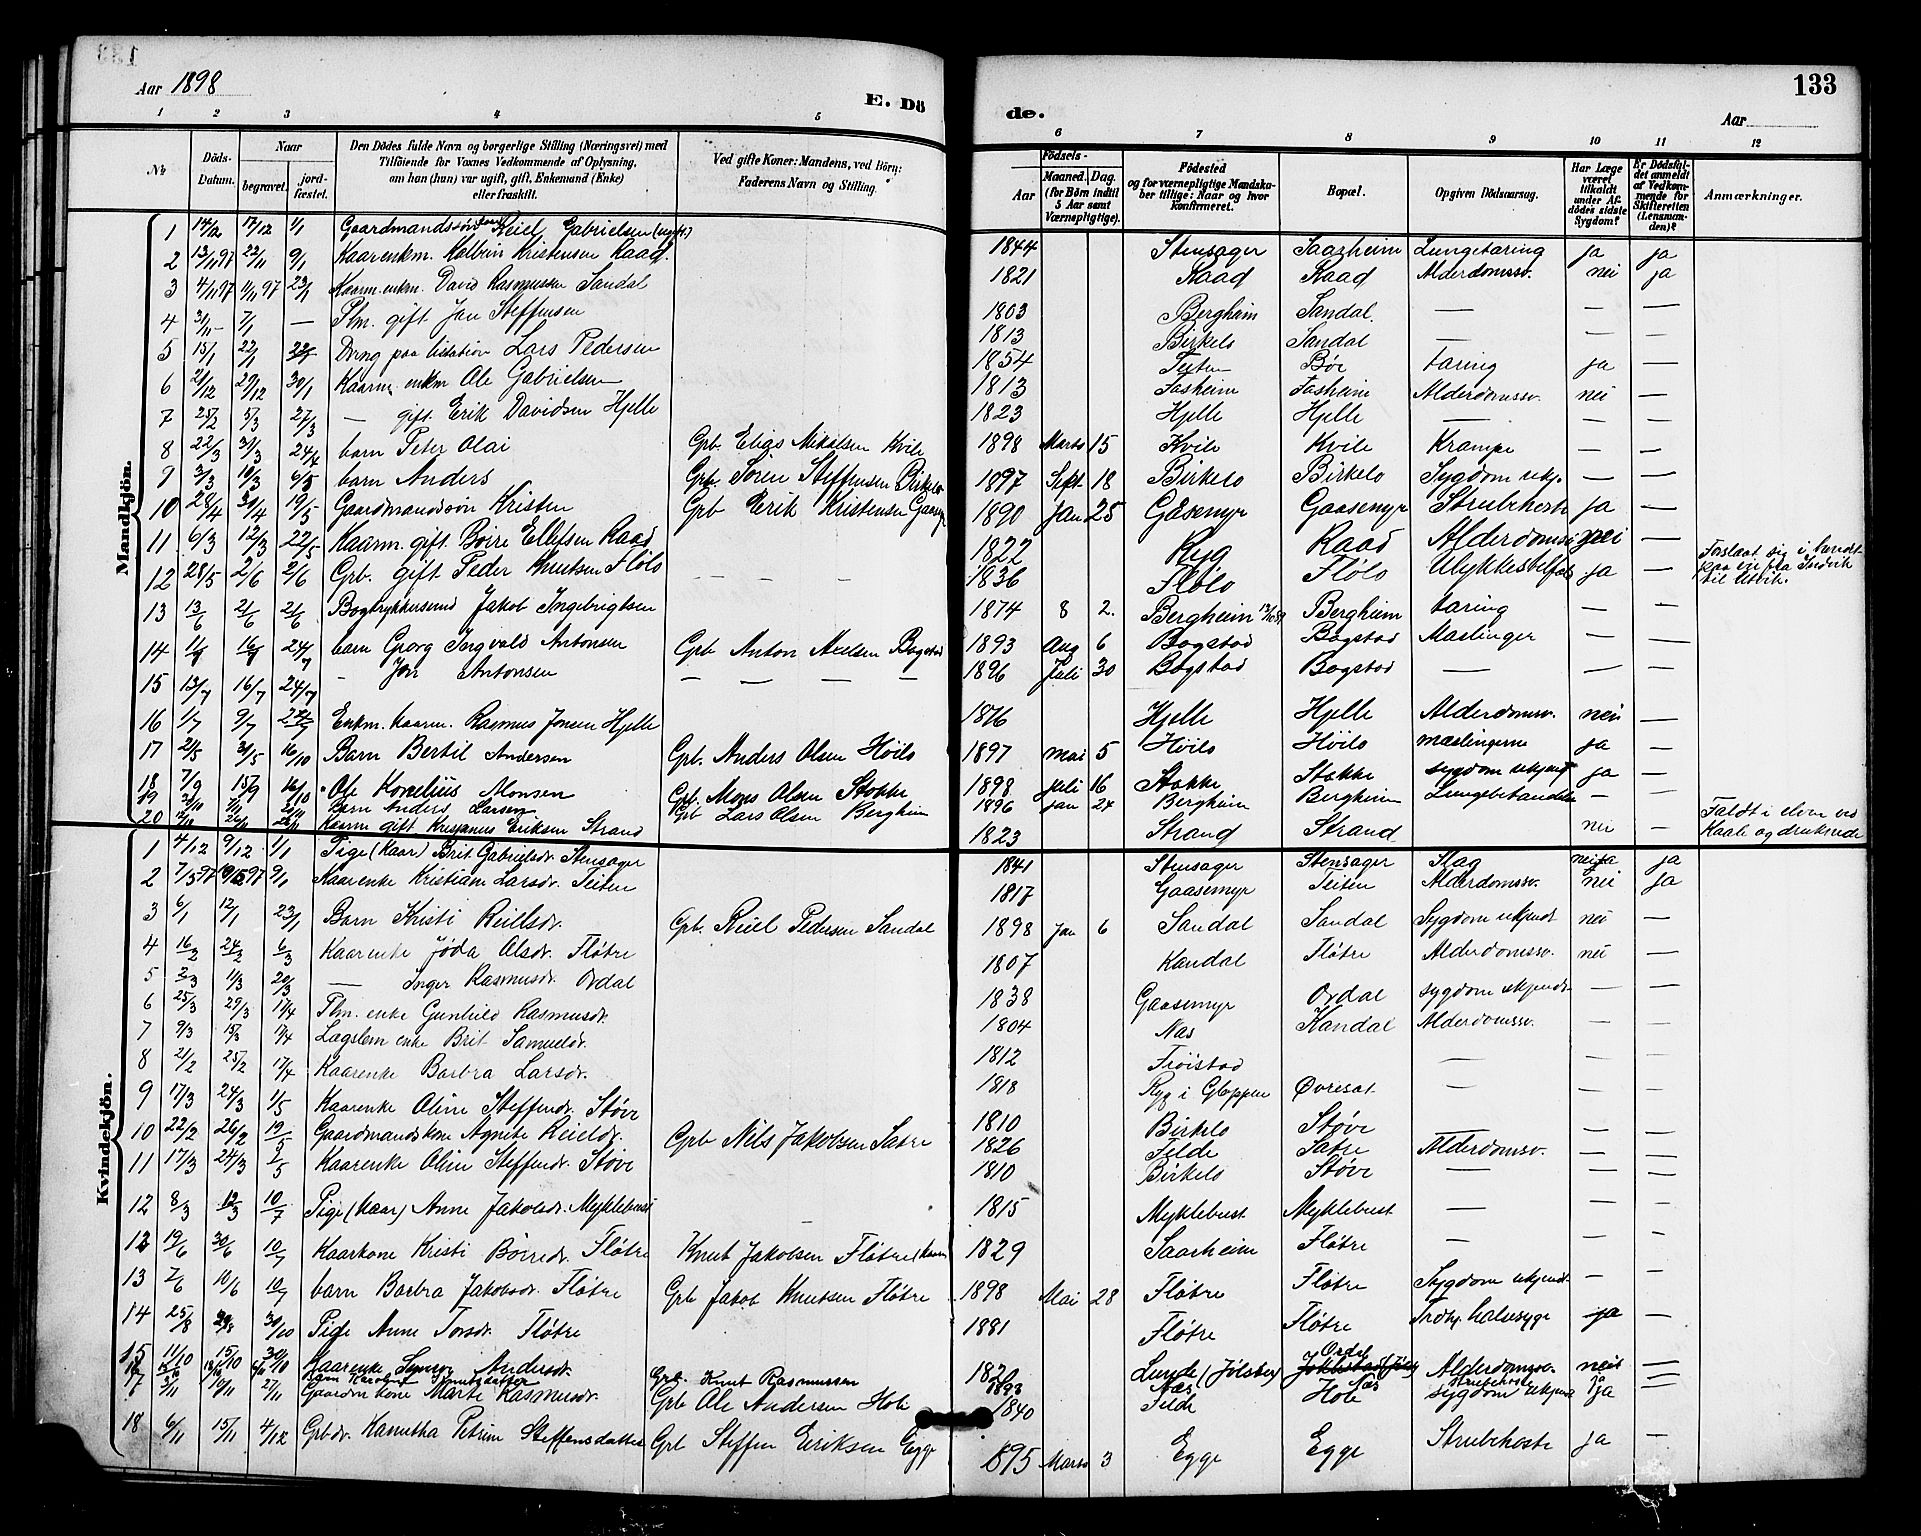 133
Aar 1898
E. Dö
de.
Aar
1 2 3 4 5 6 7 8 9 10 11 12
No
Döds-Datum.
Naar
begravet.
jord-fæstet.
Den Dödes fulde Navn og borgerlige Stilling (Næringsvei) med
Tilföiende for Voxnes Vedkommende af Oplysning,
om han (hun) var ugift, gift, Enkemand (Enke)
eller fraskilt.
Ved gifte Koner: Mandens, ved Börn:
Faderens Navn og Stilling.
Födsels-
Aar
Maaned. Dag.
(for Börn indtil
5 Aar samt
Værnepligtige).
Födested
og for værnepligtige Mandska-
ber tillige: Naar og hvor
konfirmeret.
Bopæl.
Opgiven Dödsaarsag.
Har Læge
været
tilkaldt
under Af-
dödes sidste
Sygdom?
Er Dödsfal-
det anmeldt
af Vedkom-
mende for
Skifteretten
(Lensman-
den)?
Anmærkninger.
Mandkjön.
1 14/2 17/12 1/1 Gaardmandssön Reiel Gabrielsen 1844 Stensager Saarheim Lungetæring ja ja
2 13/11 97 22/11 9/1 Kaarenkm. Kolbein Kristensen Raad 1821 Raad Raad Alderdomssv. nei ja
3 4/11 97 11/11 97 23/1 Kaarm. enkm. David Rasmussen Sandal 1803 Bergheim Sandal — — —
4 31/11 7/1 — Plm. gift Jan Steffensen 1813 Birkelo Sandal — — —
5 15/1 22/1 Dreng paa Lars Pedersen 1854 Teiten Bör Tæring ja —
6 21/12 29/12 30/1 Kaarm. enkm Ole Gabrielsen 1813 Fosheim Fosheim Alderdomssv. nei —
7 25/2 5/3 27/3 — gift Erik Davidsen Hjelle 1823 Hjelle Hjelle — — —
8 22/3 31/3 24/4 barn Peter Olai Grb. Elias Mikalsen Kvile 1898 Marts 15 Kvile Kvile Krampe — —
9 3/3 10/3 6/5 barn Anders Grb. Sören Steffensen Birkelo 1897 Sept 18 Birkelo Birkelo Sygdom ukj. — —
10 28/4 30/4 19/5 Gaardmandssön Kristen Grb Erik Kristensen Gaasmyr 1890 Jan 25 Gåsemyr Gaasemyr Strubehoste ja —
11 6/3 12/3 22/5 Kaarm. gift Börre Ellefsen Raad 1822 Ryg Raad Alderdomssv. nei —
12 28/5 2/6 2/6 Grb. gift Peder Knutsen Flölo — — — 1836 Flölo Flölo Ulykkestilfælde ja — Forslaat sig i
paa en fra Indvik
til Utvik.
13 13/6 21/6 21/6 Bogtrykkersvend Jakob Ingebrigtsen 1874 8 2. Bergheim Bergheim tæring — —
14 24/7 barn Georg Ingvald Antonsen Grb Anton Axelsen Bogstad 1893 Aug 6 Bogstad Bogstad Mæslinger — —
15 13/7 16/7 24/7 — Jon Antonsen — — — — 1896 Juli 30 Bogstad Bogstad — — —
16 1/7 9/7 24/7 Enkm. kaarm. Rasmus Jonsen Hjelle 1816 Hjelle Hjelle Alderdomssv. nei —
17 21/5 31/5 16/10 Barn Bertil Andersen Grb. Anders Olsen Höilo 1897 mai 5 Höilo Höilo mæslingerne ja —
18 7/9 15/9 16/10 Ole Kornelius Monsen Grb. Mons Olsen Stokke 1898 Juli 16 Stokke Stokke sygdom ukjent ja —
19 Barn Anders Larsen Grb Lars Olsen Bergheim 1896 jan 24 Bergheim Bergheim Lungebetændelse — —
20 Kaarm gift Kristianus Eriksen Strand 1823 Strand Strand nei — Faldt i elven ved
Kaale og druknede
Kvindekjön.
1 4/12 9/12 1/1 Pige (Kaar) Brit Gabrielsdr. Stensager 1841 Stensager Stensager Slag ja ja
2 7/5 97 9/1 Kaarenke Kristiane Larsdr. Teiten 1817 Gaasemyr Teiten Alderdomssv. nei ja
3 6/1 12/1 23/1 Barn Kristi Reielsdr. Grb. Reiel Pedersen Sandal 1898 Jan 6 Sandal Sandal Sygdom ukjendt nei —
4 16/2 24/2 6/3 Kaarenke Jøda Olsdr. Fløtre 1807 Kandal Fløtre Alderdomssv. nei —
5 2/3 11/3 20/3 — Inger Rasmusdr. Ordal 1838 Gaasemyr Ordal sygdom ukjendt — —
6 25/3 29/3 17/4 Flm. enke Gunhild Rasmusdr. 1804 Næs Kandal Alderdomssv. — —
7 9/3 15/3 17/4 Lægslem enke Brit Samuelsdr. 1812 Troistad — — —
8 21/2 25/2 17/4 Kaarenke Barbra Larsdr. 1818 Ryg i Gloppen Øvreset — — —
9 17/3 24/3 1/5 Kaarenke Oline Steffensdr. Støve 1810 Birkelo Støve — —
10 22/2 26/2 19/5 Gaardmandskone Agnete Reielsdr. Grb Nils Jakobsen Sætre 1826 Felde Sætre Alderdomssv. — —
11 17/3 24/3 Kaarenke Oline Steffensdr. Støve 1810 Birkelo Støve — — —
12 8/3 12/3 10/7 Pige (Kaar) Anne Jakobsdr. Myklebust — 1815 Myklebust Myklebust — — —
12 19/6 30/6 10/7 Kaarkone Kristi Börredr. Fløtre Knut Jakobsen Fløtre 1829 Saarheim Fløtre — —
13 7/6 10/6 10/7 barn Barbra Jakobsdr. Fløtre Grb Jakob Knutsen Fløtre 1898 Mai 28 Fløtre Fløtre Sygdom ukjendt — —
14 25/8 29/8 30/10 Pige Anne Torsdr. Fløtre 1881 Fløtre Fløtre halssyge ja —
15 11/10 15/10 30/10 Kaarenke Andersdr. 1820 Lunde (Jølster) Ordal Alderdomssv. nei —
16 Barn Karoline Knutsdatter Grb. Knut Rasmussen 1893 Næs Næs Strubehoste ja —
17 27/11 Gaardm kone Marte Rasmusdr. Grb Ole Andersen Hole 1840 Felde Hole sygdom ukjendt ja —
18 6/11 15/11 4/12 Grbdr. Kanutha Petrine Steffensdatter Grb Steffen Eriksen Egge 1895 Marts 3 Egge Egge Strubehoste ja —